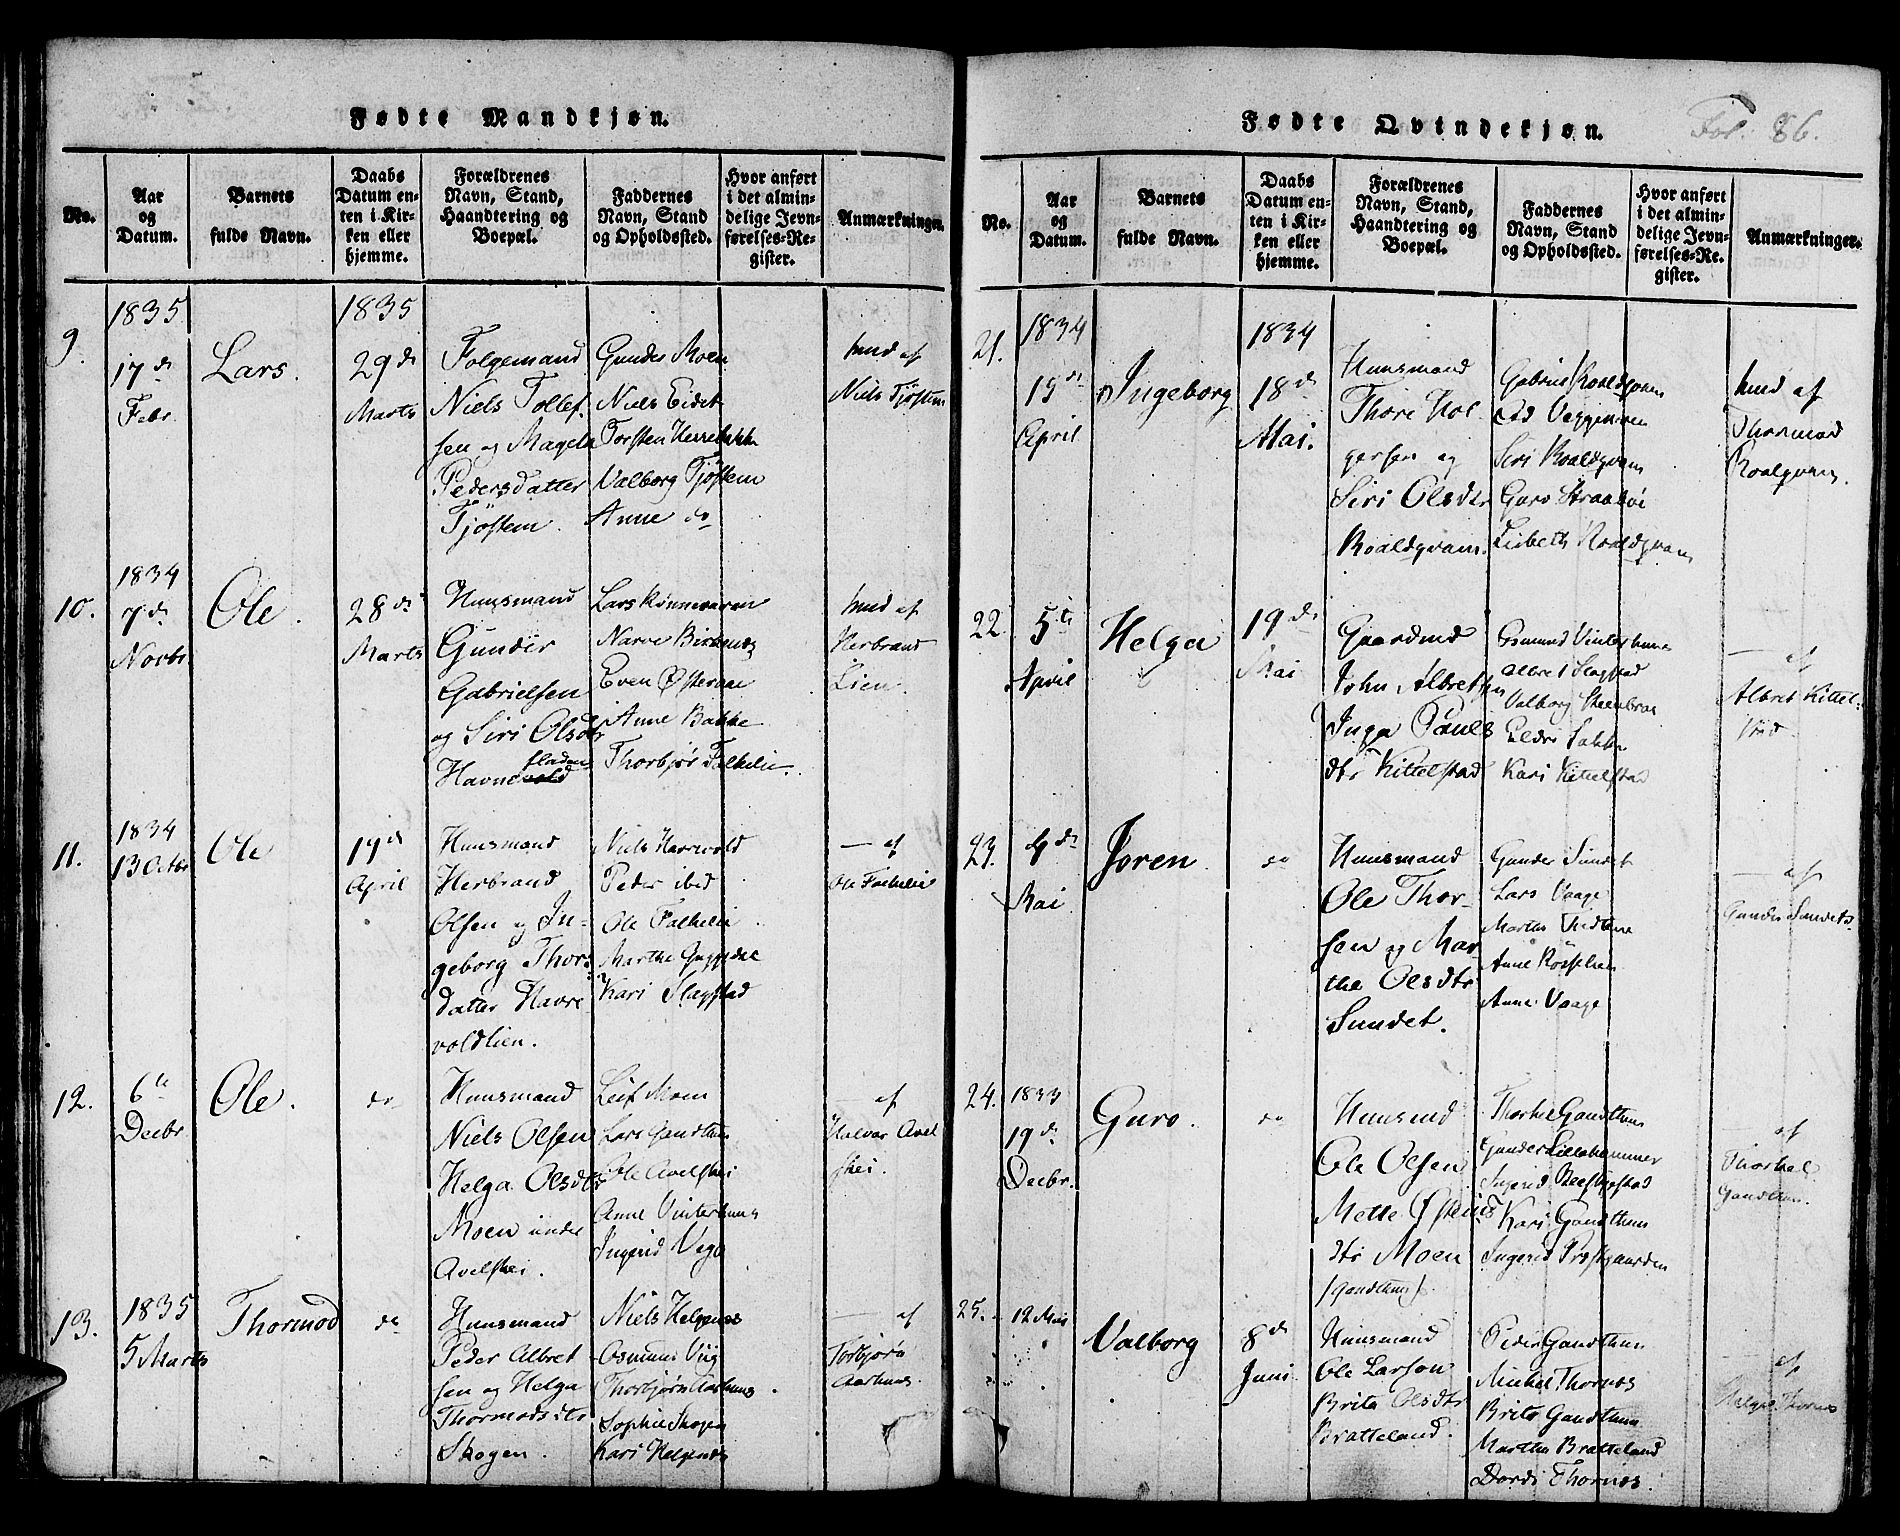 Fødte Mandkjøn.
No.
Aar
og
Datum.
Barnets
fulde Navn.
Daabs
Datum en-
ten i Kir-
ken eller
hjemme.
Forældrenes
Navn, Stand,
Haandtering og
Boepæl.
Faddernes
Navn, Stand
og Opholdssted.
Hvor anført
i det almin-
delige Jevn-
førelses-Re-
gister.
Anmærkninger.
9.
1835
17de
Febr
Lars.
1835
29de
Marts
Folgemand
Niels Tollef
sen og Magela
Pedersdatter
Tjøstem.
Gunder Moen
Niels Eidet
Torsten Herrebakke
Valborg Tjøstem
Anne do
hmd af
Niels Tjøstem
10.
1834
7de
Novbr
Ole.
28de
Marts
Huusmand
Gunder
Gabrielsen
og Siri Olsdtr
fladen
Havnevold
Lars Rønnevaren
Narve Birkenes
Even Østeraae
Anne Bakke
Thorbjør Falkelie.
hmd af
Herbrand
Lien.
11.
1834
13 Octbr
Ole
19de
April
Huusmand
Herbrand
Olsen og In-
geborg Thors
datter Havre
voldlien.
Niels Havrvold
Peder ibid
Ole Falkelie
Marthe Guggedal
Kari Slagstad
— af
Ole Falkelie
12.
6te
Decbr
Ole.
do
Huusmand
Niels Olsen
Helga Olsdtr
Moen under
Avelskei.
Leif Moen
Lars Gandthun
Ole Avelskei
Anne Vinterhuus
Ingerid Vega
af
Halvor Avel
skei.
13.
1835
5 Marts
Thormod
do
Huusmand
Peder Albret
sen og Helga
Thormodsdtr
Skogen.
Niels Helgenæs
Osmund Viig
Thorbjørn Aarhuus
Sophie Skogen
Kari Helgenæs
— af
Torbjørn
Aarhuus.
Fødte Qvindekjøn.
Fol. 86.
No.
Aar
og
Datum.
Barnets
fulde Navn.
Daabs
Datum en-
ten i Kir-
ken eller
hjemme.
Forældrenes
Navn, Stand,
Haandtering og
Boepæl.
Faddernes
Navn, Stand
og Opholdssted.
Hvor anført
i det almin-
delige Jevn-
førelses-Re-
gister.
Anmærkninger.
21.
1834
15de
April
Ingeborg
1834
18de
Mai.
Huusmand
Thore Hol
gersen og
Siri Olsdtr
Roaldqvam.
Gabriel Roaldqvam
Siri Roaldqvam
Guro Straabøe
Lisbeth Roaldqvam
hmd af
Thormod
Roalqvam.
22.
5te
April
Helga
19de
Mai
Gaardmd
John Albretsen
Inga Pouls
dtr Kittelstad
Osmund Vinterhuus
Albret Slagstad
Valborg Steenbroe
Eldri Bakke
Kari Kittelstad
— af
Albret Kittel-
stad.
23.
4de
Mai
Joren
do
Huusmand
Ole Thor-
sen og Mar
the Olsdtr
Sundet.
Gunder Sundet
Lars Vaage
Marthe Tredtene
Anne
Anne Vaage
— af
Gunder Sundets
24.
1833
19de
Decbr.
Guro.
do
Huusmd
Ole Olsen
Mette Østens
dtr Moen
(Gandthun).
Thorkel Gandthun
Gunder Lillehammer
Ingerid
Kari Gandthun
Ingerid Prestgaarden
— af
Thorkel
Gandthun.
25.
12 Mai
Valborg
8de
Juni
Huusmand
Ole Larson
Brita Olsdtr
Bratteland.
Peder Gandthun
Mickel Thornæs
Brita Gandthun
Martha Bratteland
Dordi Thornæs.
— af
Helge Thornæs